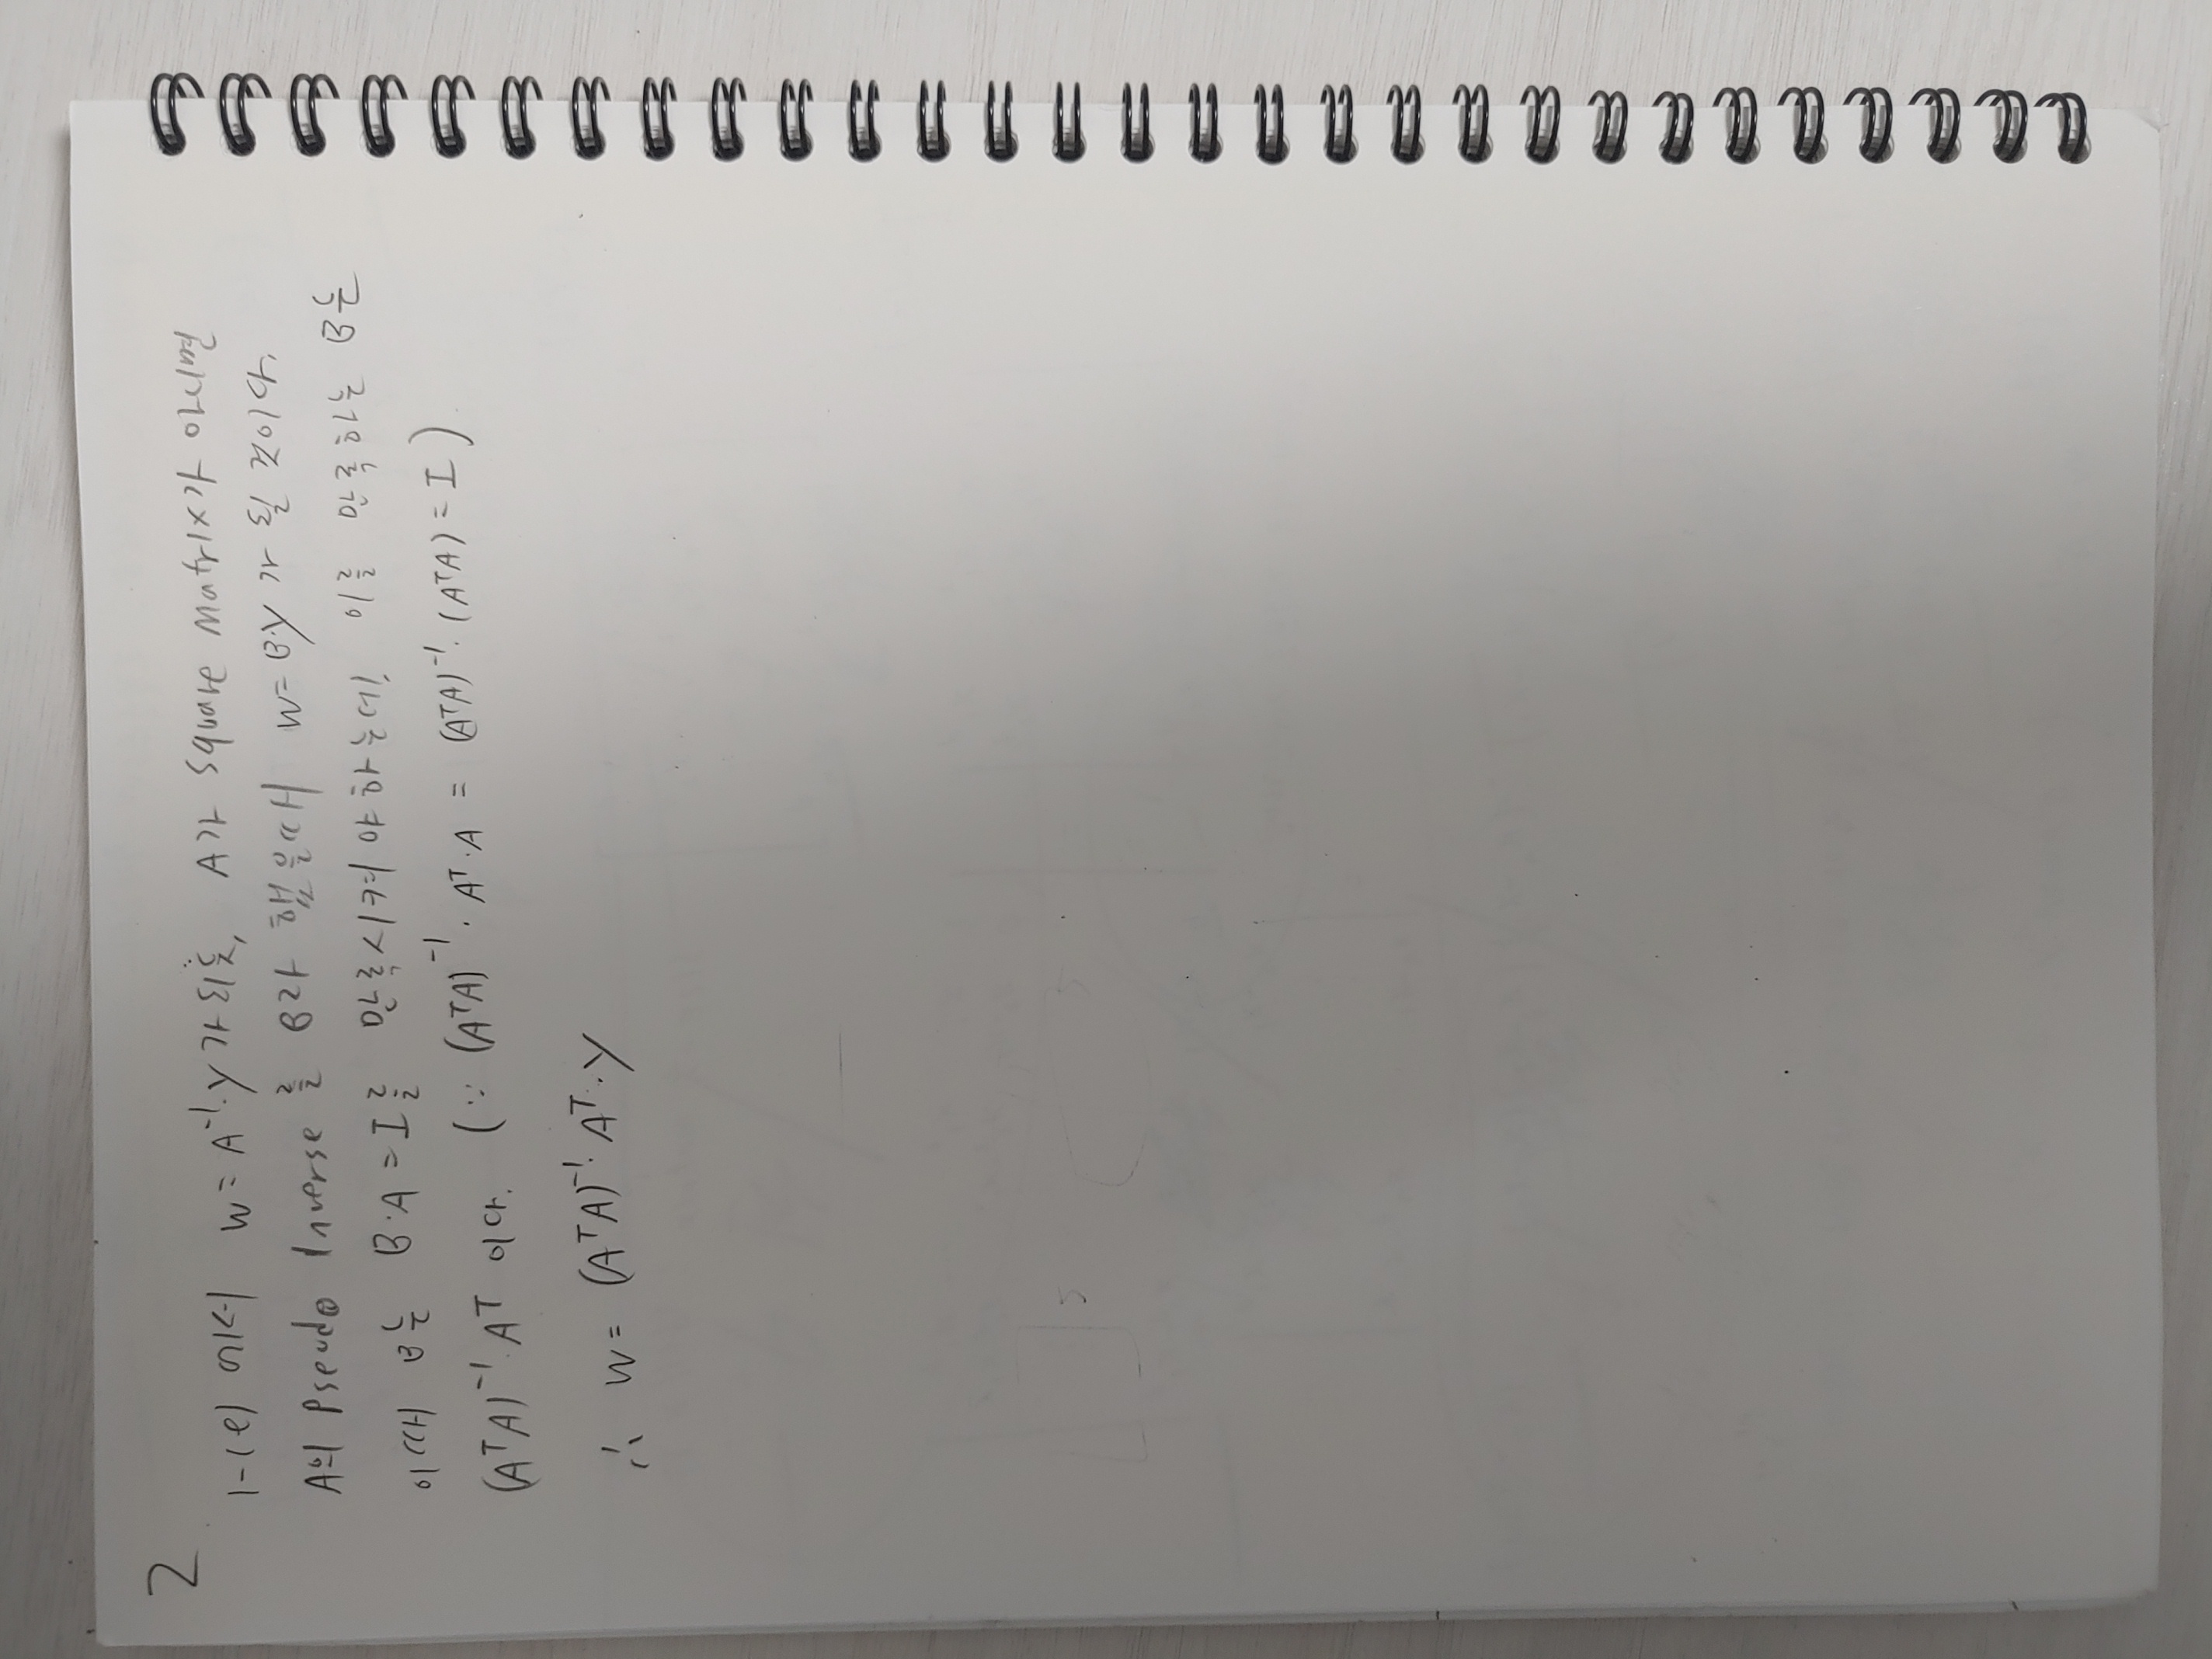 2
1-(e) 에서 W = A⁻¹·Y가 되듯, A가 square Matrix가 아니면
A의 Pseudo Inverse를 B라 했을때 W = B·Y가 될 것이다.
이때 B는 B·A = I를 만족시켜야하는데, 이를 만족하는 B는
(AᵀA)⁻¹·Aᵀ 이다. (∵ (AᵀA)⁻¹·Aᵀ·A = (AᵀA)⁻¹·(AᵀA) = I)
∴ W = (AᵀA)⁻¹·Aᵀ·Y